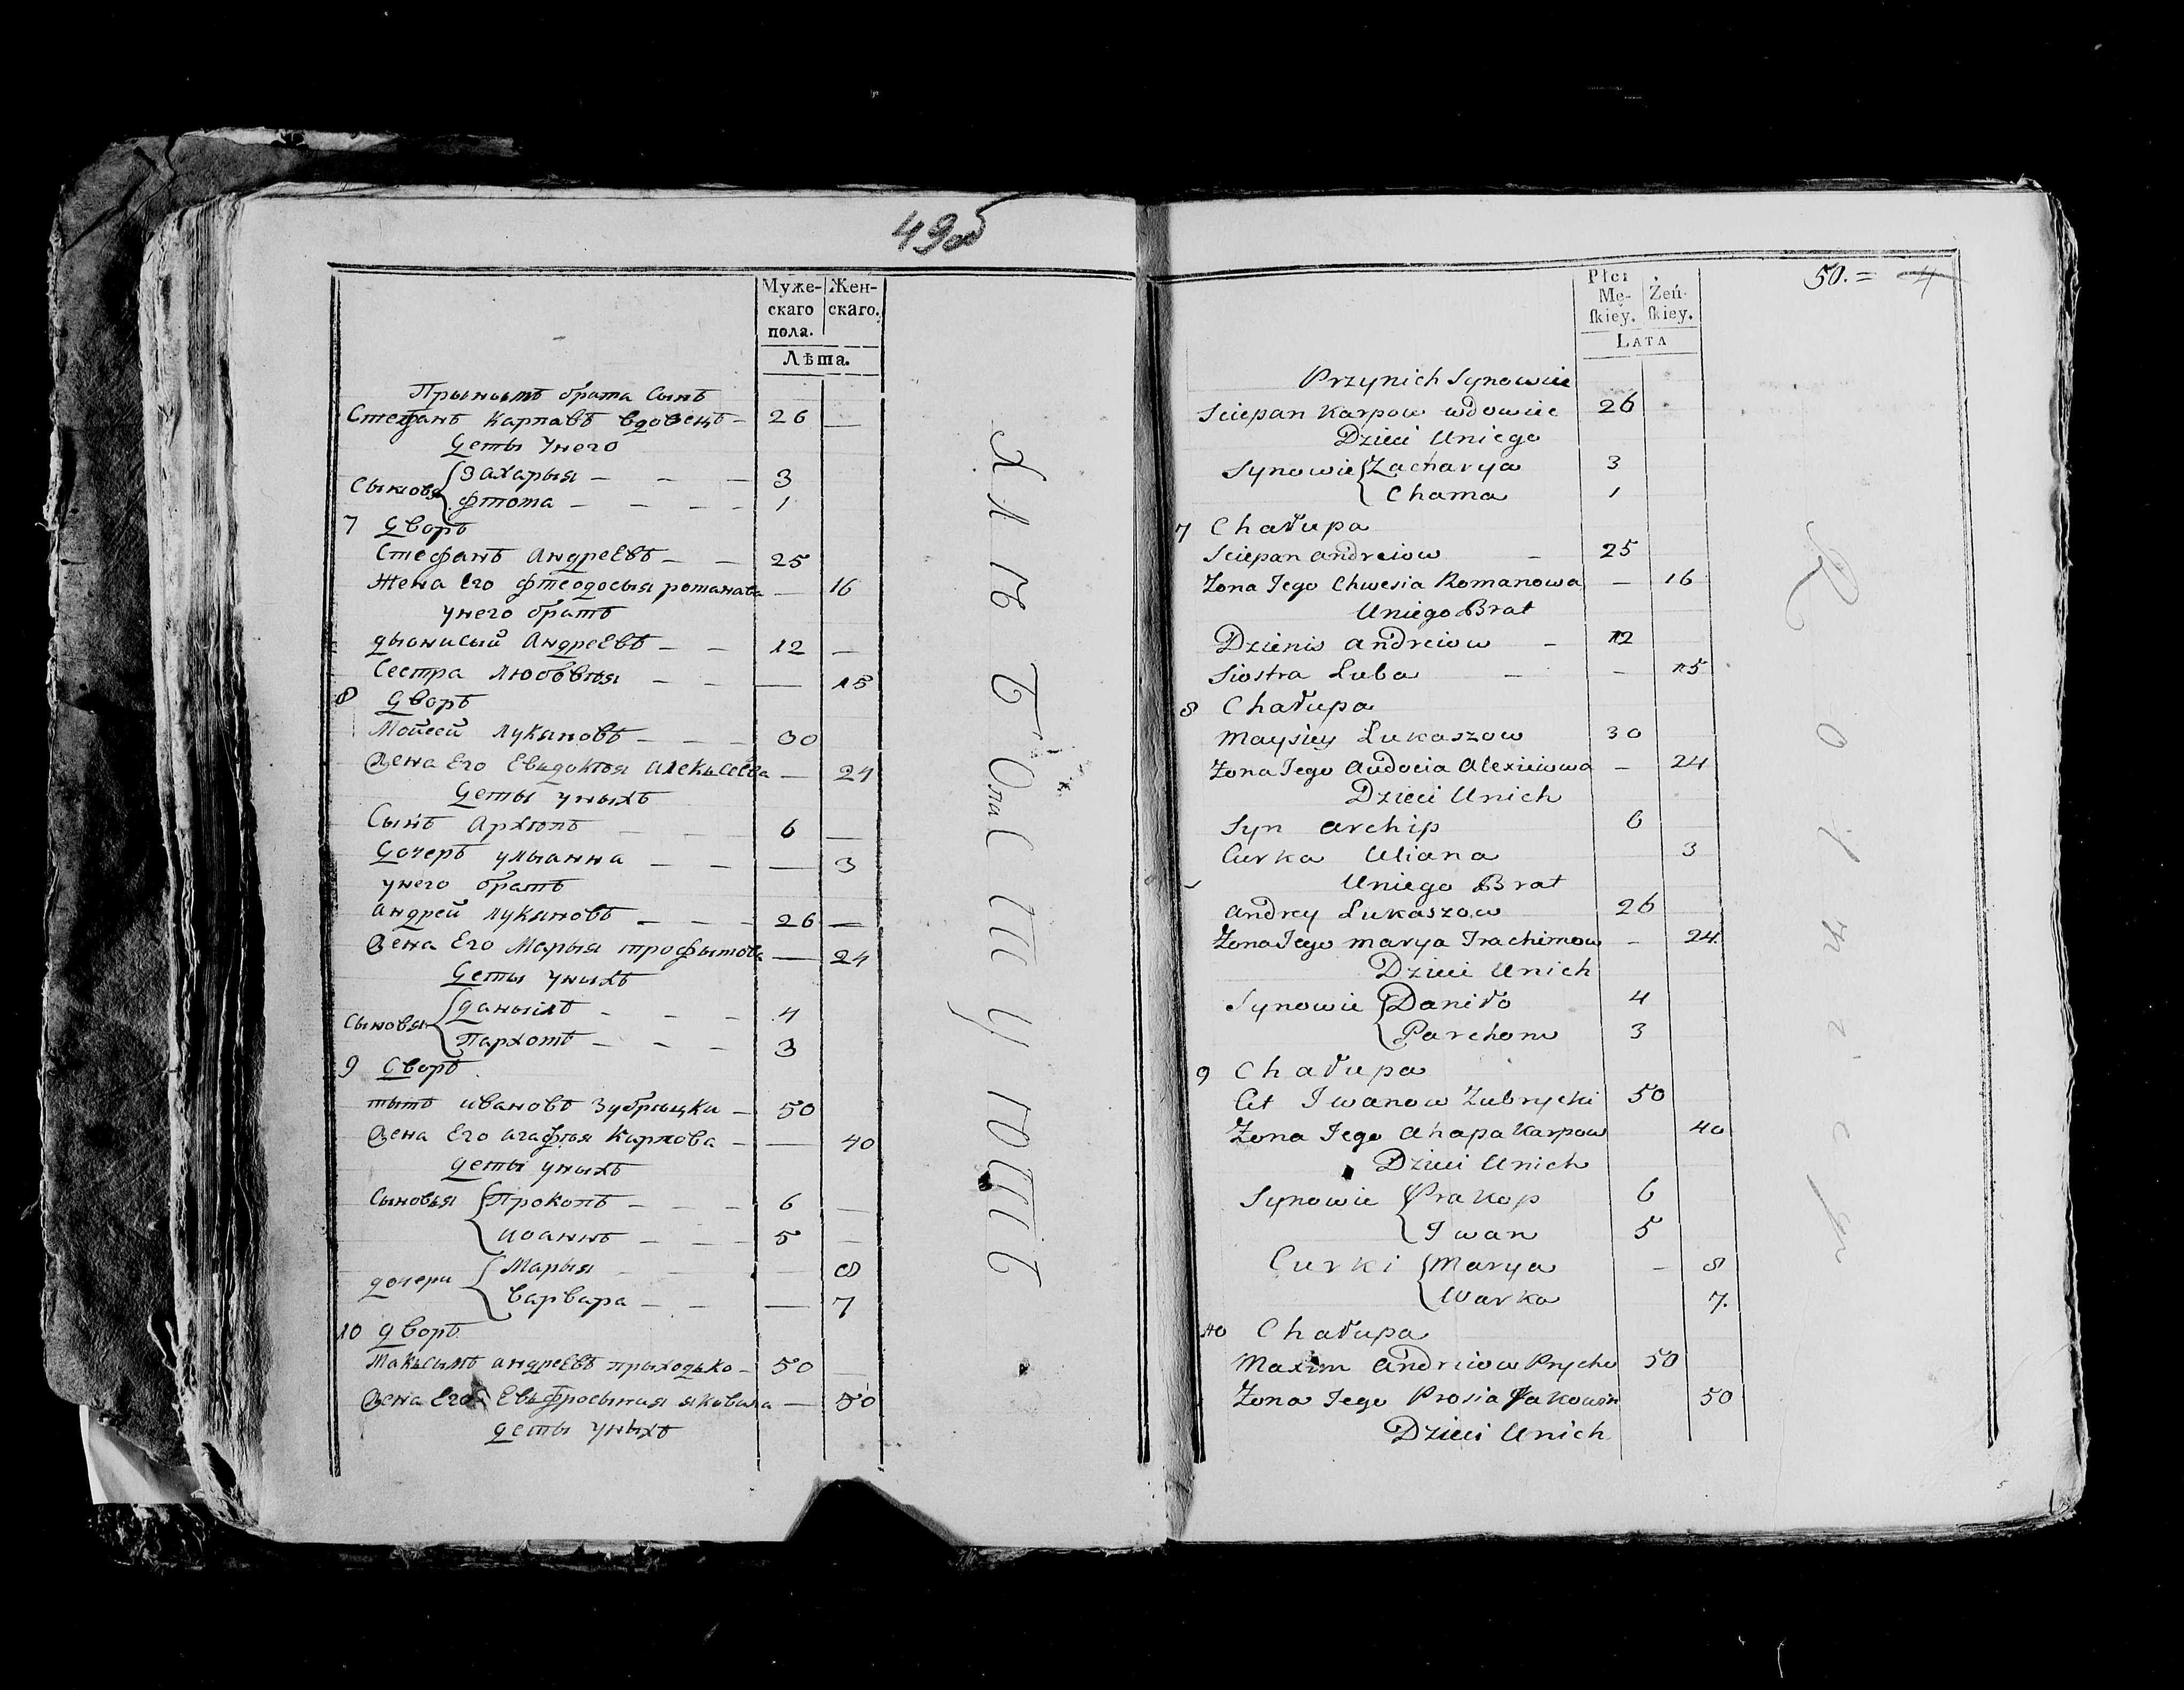 49об
Муже-
скаго
пола.
Жен-
скаго.
Лѣта.
Прыныхъ брата Сынъ
Стефанъ Карпавъ вдовецъ — 26 —
Деты Унего
Сыновя { Захарыя — — — 3
фтома — — — — 1
7 Дворъ
Стефанъ Андреевъ — — 25
Жена Его фтеодосыя романава — 16
унего братъ
дыонисый Андреевъ — — 12 —
Сестра Любовья — — — 15
8 Дворъ
Мойсей Лукяновъ — — — 30
Жена Его Евидоктя Алекьсеева — 24
Деты уныхъ
Сынъ Архюпъ — — — 6 —
Дочеръ ульанна — — — 3
унего братъ
андрей лукяновъ — — — 26 —
Жена Его Марыя трофымова — 24
Деты уныхъ
Сыновья { данылъ — — — 4
Пархомъ — — — 3
9 Дворъ
тытъ ивановъ Зубрыцки — 50
Жена Его агафтя Карпова — — 40
деты уныхъ
Сыновья { Прокопъ — — — 6 —
иоаннъ — — — 5 —
дочери { Марыя — — — 8
варвара — — — 7
10 дворъ
Макьсымъ андреевъ прыходько — 50 —
Жена Его Евьфросыния яковьла — 50
деты уныхъ
Płci
Mę-
ſkiey.
Żeń-
ſkiey.
LATA
50. = 4
Przynich Synowiec
Sciepan Karpow wdowiec 26
Dzieci Uniego
Synowie { Zacharya 3
Chama 1
7 Chałupa
Sciepan andreiow — 25
Zona Jego Chwesia Romanowa — 16
Uniego Brat
Dzienis andreiow — 12
Siostra Luba — — 15
8 Chałupa
Maysiey Lukaszow 30
Zona Jego Audocia Alexieiowa — 24
Dzieci Unich
Syn archip 6
Curka Uliana 3
Uniego Brat
andrey Lukaszow 26
Zona Jego marya Trachimow — 24.
Dzieci Unich
Synowie { Daniło 4
Parchom 3
9 Chałupa
Cit Iwanow Zubrycki 50
Zona Jego ahapa Karpow 40
Dzieci Unich
Synowie { Prakop 6
Iwan 5
Curki { Marya — 8
Warka 7.
10 Chałupa
Maxim Andreiow Prycho 50
Zona Jego Prosia Jakowow 50
Dzieci Unich